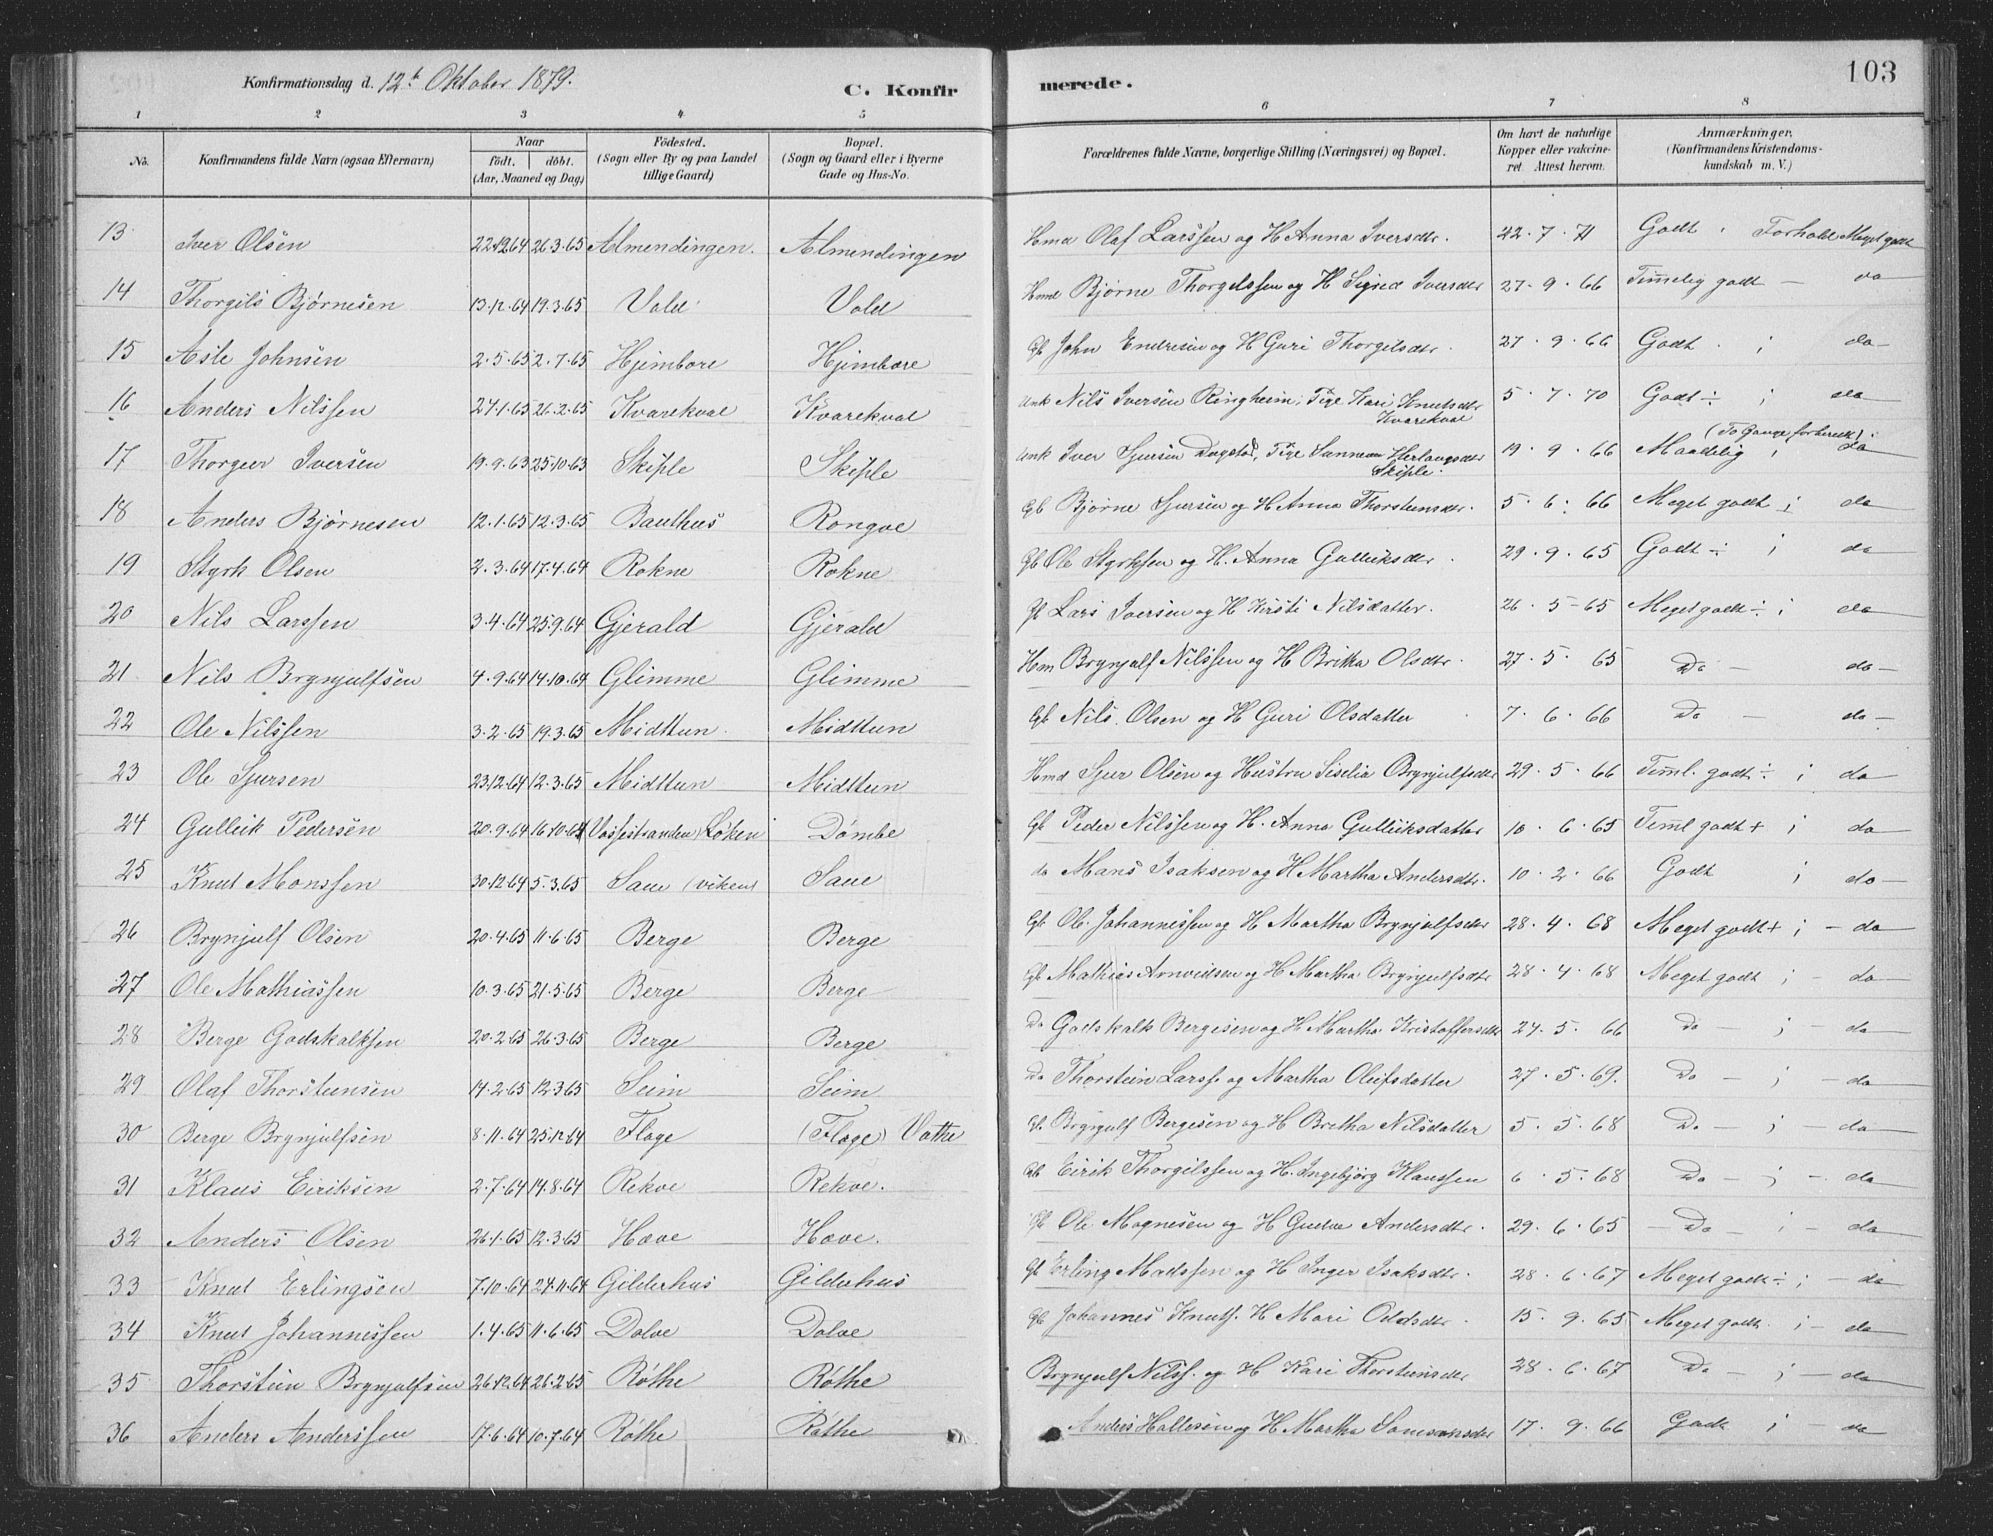 Konfirmationsdag d. 12te Oktober 1879. C. Konfirmerede. 103
1 2 3 4 5 6 7 8
No. Konfirmandens fulde Navn (ogsaa Efternavn) Naar födt. döbt. (Aar, Maaned og Dag) Födested. (Sogn eller By og paa Landet tillige Gaard) Bopæl. (Sogn og Gaard eller i Byerne Gade og Hus-No. Forældrenes fulde Navne, borgerlige Stilling (Næringsvei) og Bopæl. Om havt de naturlige Kopper eller vakcineret. Attest herom. Anmærkninger. (Konfirmandens Kristendomskundskab m. V.)
13 Iver Olsen 22.12.64 26.3.65 Almendingen. Almendingen Hmd Olaf Larssen og H Anna Iversdtr. 22.7.71 Godt. Forhold Meget godt
14 Thorgils Bjørnesen 13.12.64 19.3.65 Vold Vold Hmd Bjørne Thorgilssen og H Sigrid Iversdtr 27.9.66 Timmelig godt — do
15 Asle Johnsen 2.5.65 2.7.65 Hjimbore Hjimbore Gb John Endresen og H Guri Thorgilsdtr. 27.9.66 Godt. i do
16 Anders Nilssen 27.1.65 26.2.65 Kvarekval Kvarekval Unk Nils Iversen Ringheim, Pige Kari Knutsdtr Kvarekval 5.7.70 Godt ÷ i do
17 Thorgeir Iversen 19.9.63 25.10.63 Skiple Skiple Unk Iver Sjursen Dagstad, Pige Sunneva Herlaugsdtr Skiple. 19.9.66 Maadelig i (To Gange forberedt) do
18 Anders Bjørnesen 12.1.65 12.3.65 Bauthus Rongve Gb Bjørne Sjursen og H Anna Thorsteinsdtr. 5.6.66 Meget godt i do
19 Styrk Olsen 2.3.64 17.4.64 Rokne Rokne Gb Ole Styrksen og H. Anna Gulleiksdtr. 29.9.65 Godt ÷ i do
20 Nils Larssen 3.4.64 25.9.64 Gjerald Gjerald Gb Lars Iversen og H Kirsti Nilsdatter. 26.5-65 Meget godt ÷ i do
21 Nils Brynjulfsen 4.9.64 14.10.64 Glimme Glimme Hm Brynjulf Nilssen og H Britha Olsdtr. 27.5.65 Do — do
22 Ole Nilssen 3.2.65 19.3.65 Midttun. Midttun Gb Nils Olsen og H Guri Olsdatter 7.6.66 Do — do -
23 Ole Sjursen 23.12.64 12.3.65 Midttun Midttun Hmd Sjur Olsen og Hustru Siselia Brynjulfsdtr 29.5.66 Timl. godt ÷ i do
24 Gulleik Pedersen 20.9.64 16.10.64 Vossestranden Løken Dömbe Gb Peder Nilssen og H. Anna Gulleiksdatter 10.6.65 Timl godt + i do
25 Knut Monssen 30.12.64 5.3.65 Saue (viken) Saue do Mans Isaksen og H Martha Andersdtr. 10.2.66 Godt i do
26 Brynjulf Olsen 20.4.65 11.6.65 Berge Berge Gb Ole Johannessen og H Martha Brynjulfsdtr 28.4.68 Meget godt + i - do
27 Ole Mathiassen 10.3.65 21.5.65 Berge Berge Gb Mathias Arnveidsen og H Martha Brynjulfsdtr 28.4.68 Meget godt i - do
28 Berge Godskalksen 20.2.65 26.3.65 Berge Berge Do Godskalk Bergesen og H Martha Kristoffersdtr 27.5.66 Do — i - do
29 Olaf Thorsteinsen 14.2.65 12.3.65 Seim Seim Do Thorstein Larss. og Martha Oleifsdatter 27.5.69. Do - i - do
30 Berge Brynjulfsen 8.11.64 25.12.64 Flage (Flage) Vothe Gb. Brynjulf Bergesen og H Britha Nilsdatter 5.5.68 Do - i - do
31 Klaus Eiriksen 2.7.64 14.8.64 Rekve Rekve. Gb Eirik Thorgilssen og H. Ingebjörg Klaussen 6.5.68 Do - i - do
32 Anders Olsen 26.1.65 12.3.65 Hæve Hæve. Gb Ole Magnesen og H Andersdtr. 29.6.65 — Do i - do
33 Knut Erlingsen 7.10.64 27.11.64 Gilderhus Gilderhus Gb Erling Madssen og H Inger Isaksdtr. 28.6.67 Meget godt ÷ i - do
34 Knut Johannessen 1.4.65 11.6.65 Dolve Dolve Gb Johannes Knuts. H Mari Oddsdtr 15.9.65 Meget godt. i - do
35 Thorstein Brynjulfsen 26.12.64 26.2.65 Röthe Röthe Brynjulf Nilss. og H Kari Thorsteinsdtr 28.6.67 Do — i - do
36 Anders Anderssen 17.6.64 10.7.64 Röthe Röthe Anders Hallesen og H Martha Samsonsdtr 17.9.66 Godt i - do